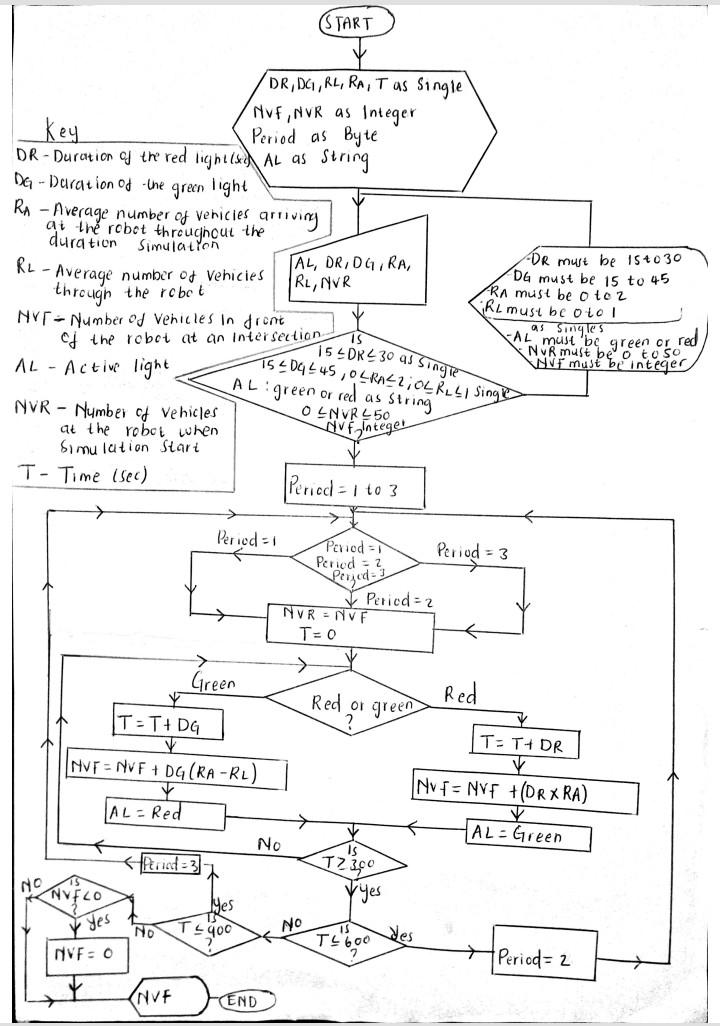 START
DR, DG, RL, RA, T as Single
NVF, NVR as Integer
Period as Byte
AL as String
Key
DR - Duration of the red light (sec)
DG - Duration of the green light
RA - Average number of vehicles arriving
at the robot throughout the
duration simulation
RL - Average number of Vehicles
through the robot
NVF - Number of Vehicles In front
of the robot at an intersection
AL - Active light
NVR - Number of Vehicles
at the robot when
Simulation Start
T - Time (sec)
AL, DR, DG, RA,
RL, NVR
-DR must be 15 to 30
DG must be 15 to 45
-RA must be 0 to 2
RL must be 0 to 1
as singles
-AL must be green or red
NVR must be 0 to 50
NVF must be integer
IS
15 ≤ DR ≤ 30 as Single
15 ≤ DG ≤ 45, 0 ≤ RA ≤ 2, 0 ≤ RL ≤ 1 Single
AL : green or red as String
0 ≤ NVR ≤ 50
NVF Integer
?
Period = 1 to 3
Period = 1
Period = 1
Period = 2
Period = 3
?
Period = 3
Period = 2
NVR = NVF
T = 0
Green
Red or green
?
Red
T = T + DG
T = T + DR
NVF = NVF + DG (RA - RL)
NVF = NVF + (DR X RA)
AL = Red
AL = Green
No
IS
T ≥ 300
?
Yes
Period = 3
Yes
NO
IS
NVF < 0
?
Yes
No
IS
T ≤ 900
?
NO
IS
T ≤ 600
?
Yes
Period = 2
NVF = 0
NVF
END